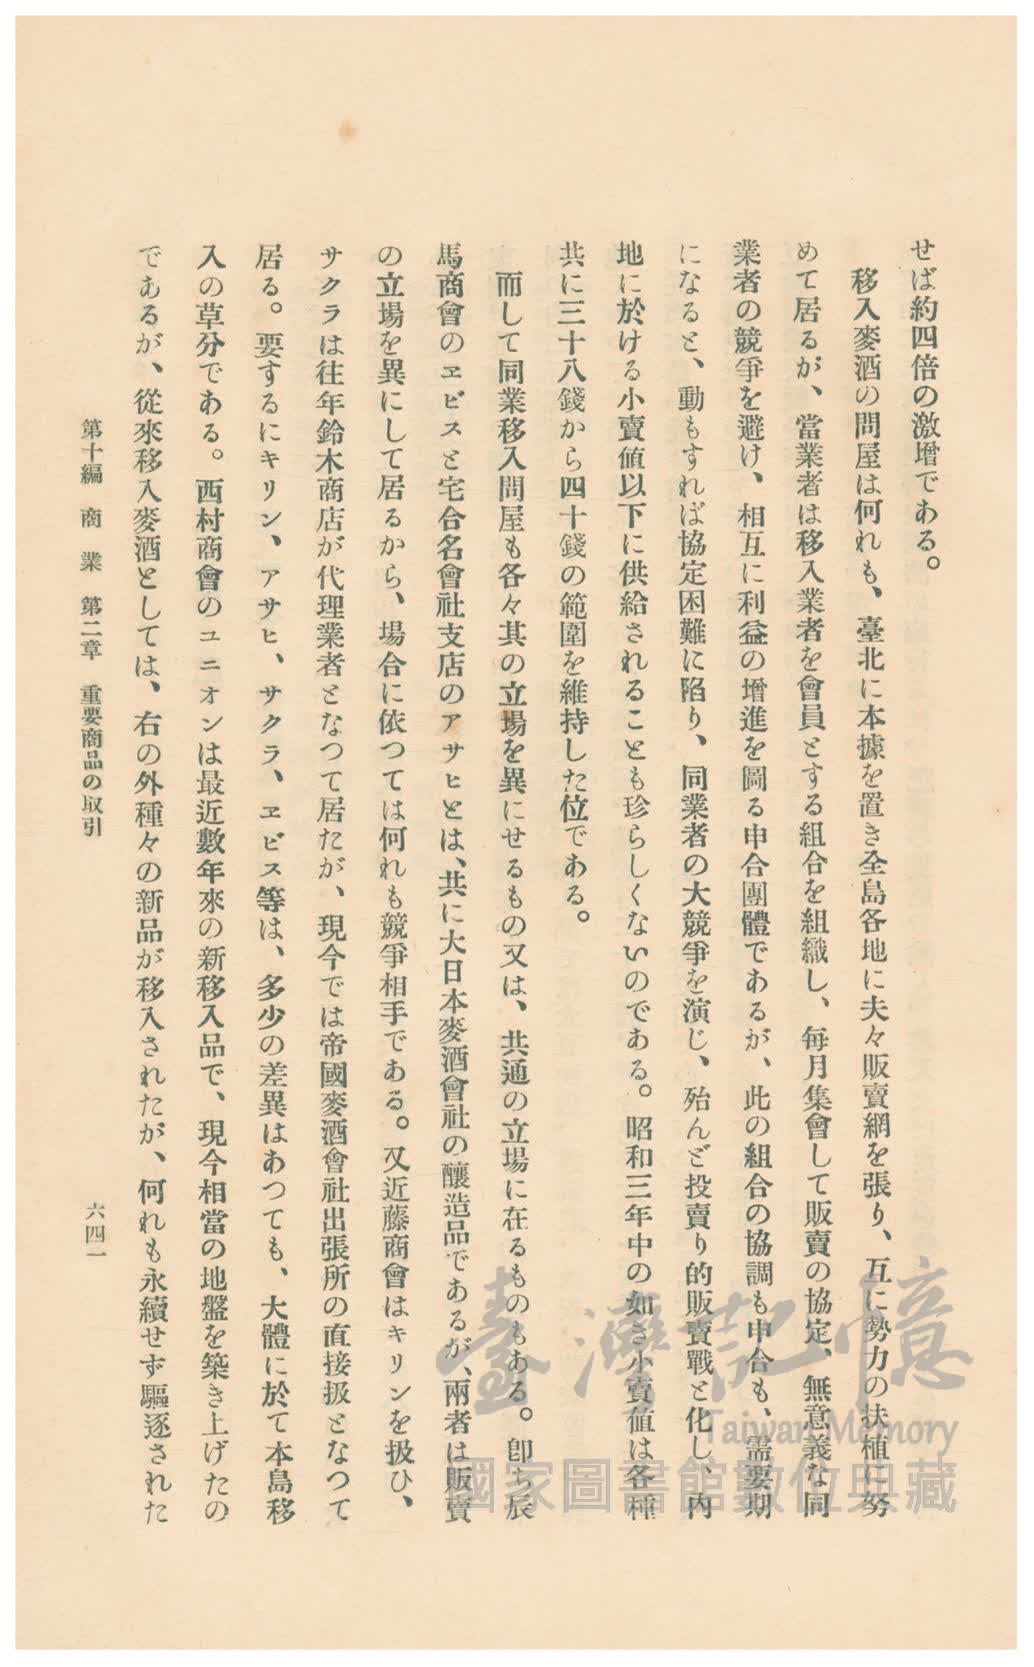 せば約四倍の激增である。
移入麥酒の問屋は何れも、臺北に本據を置き全島各地に夫々販賣網を張り、互に勢力の扶植に努
めて居るが、當業者は移入業者を會員とする組合を組織し、每月集會して販賣の協定、無意義な同
業者の競爭を避け、相互に利益の增進を圖る申合團體であるが、此の組合の協調も申合も、需要期
になると、動もすれば協定困難に陷り、同業者の大競爭を演じ、殆んど投賣り的販賣戰と化し、內
地に於ける小賣値以下に供給されることも珍らしくないのである。昭和三年中の如き小賣値は各種
共に三十八錢から四十錢の範圍を維持した位である。
而して同業移入問屋も各々其の立場を異にせるもの又は、共通の立場に在るものもある。卽ち辰
馬商會のヱビスと宅合名會社支店のアサヒとは、共に大日本麥酒會社の釀造品であるが、兩者は販賣
の立場を異にして居るから、場合に依つては何れも競爭相手である。又近藤商會はキリンを扱ひ、
サクラは往年鈴木商店が代理業者となつて居たが、現今では帝國麥酒會社出張所の直接扱となつて
居る。要するにキリン、アサヒ、サクラ、ヱビス等は、多少の差異はあつても、大體に於て本島移
入の草分である。西村商會のユニオンは最近數年來の新移入品で、現今相當の地盤を築き上げたの
であるが、從來移入麥酒としては、右の外種々の新品が移入されたが、何れも永續せず驅逐された
第十編 商業 第二章 重要商品の取引
六四一
臺灣記憶
Taiwan Memory
國家圖書館數位典藏